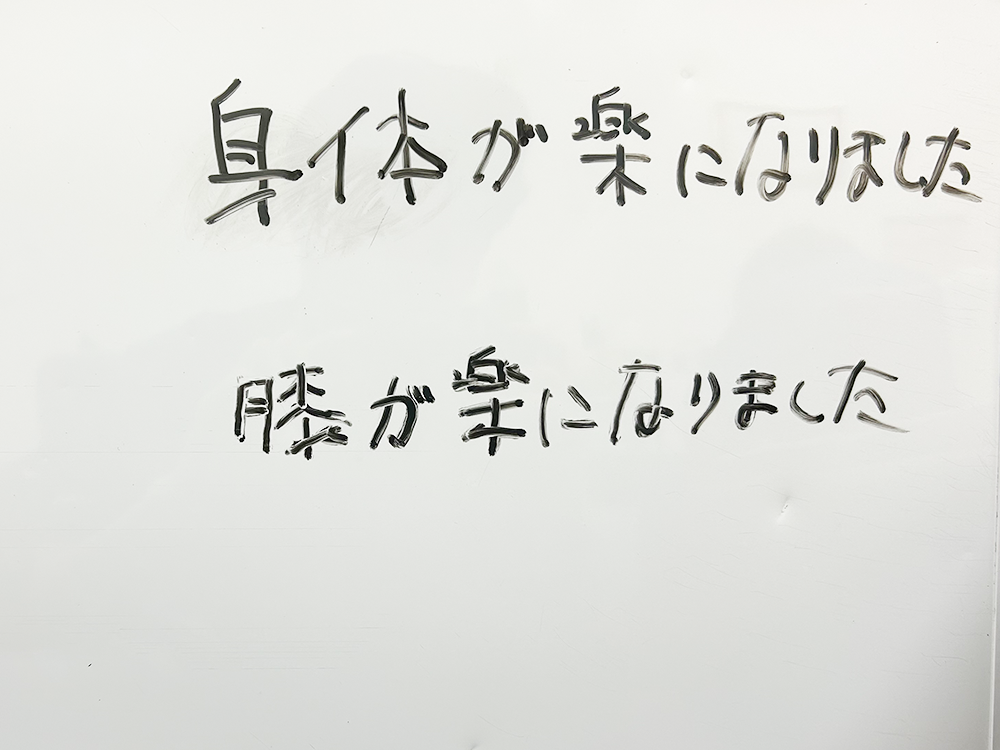 身体が楽になりました
膝が楽になりました